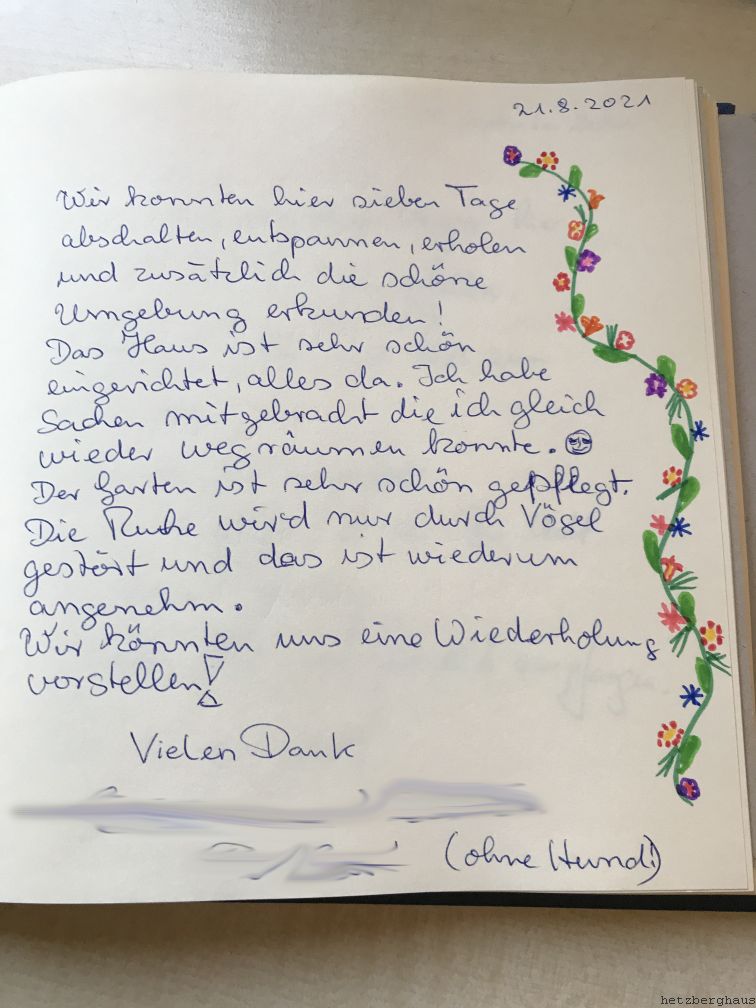 21.8.2021
Wir konnten hier sieben Tage
abschalten, entspannen, erholen
und zusätzlich die schöne
Umgebung erkunden!
Das Haus ist sehr schön
eingerichtet, alles da. Ich habe
Sachen mitgebracht die ich gleich
wieder wegräumen konnte.
Der Garten ist sehr schön gepflegt.
Die Ruhe wird nur durch Vögel
gestört und das ist wiederum
angenehm.
Wir könnten uns eine Wiederholung
vorstellen!
Vielen Dank
(ohne Hund!)
hetzberghaus